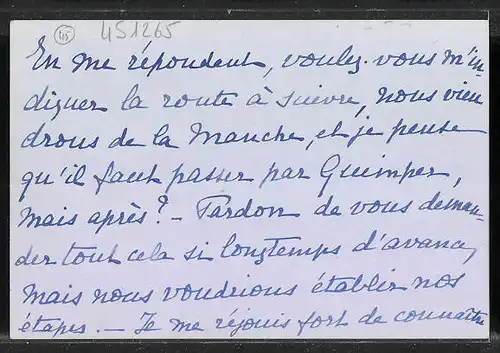 45 451265
En me répondant, voulez-vous m'in
diquer la route à suivre, nous vien
drons de la Manche, et je pense
qu'il faut passer par Quimper,
mais après? — Pardon de vous deman
der tout cela si longtemps d'avance,
mais nous voudrions établir nos
étapes. — Je me réjouis fort de connaître